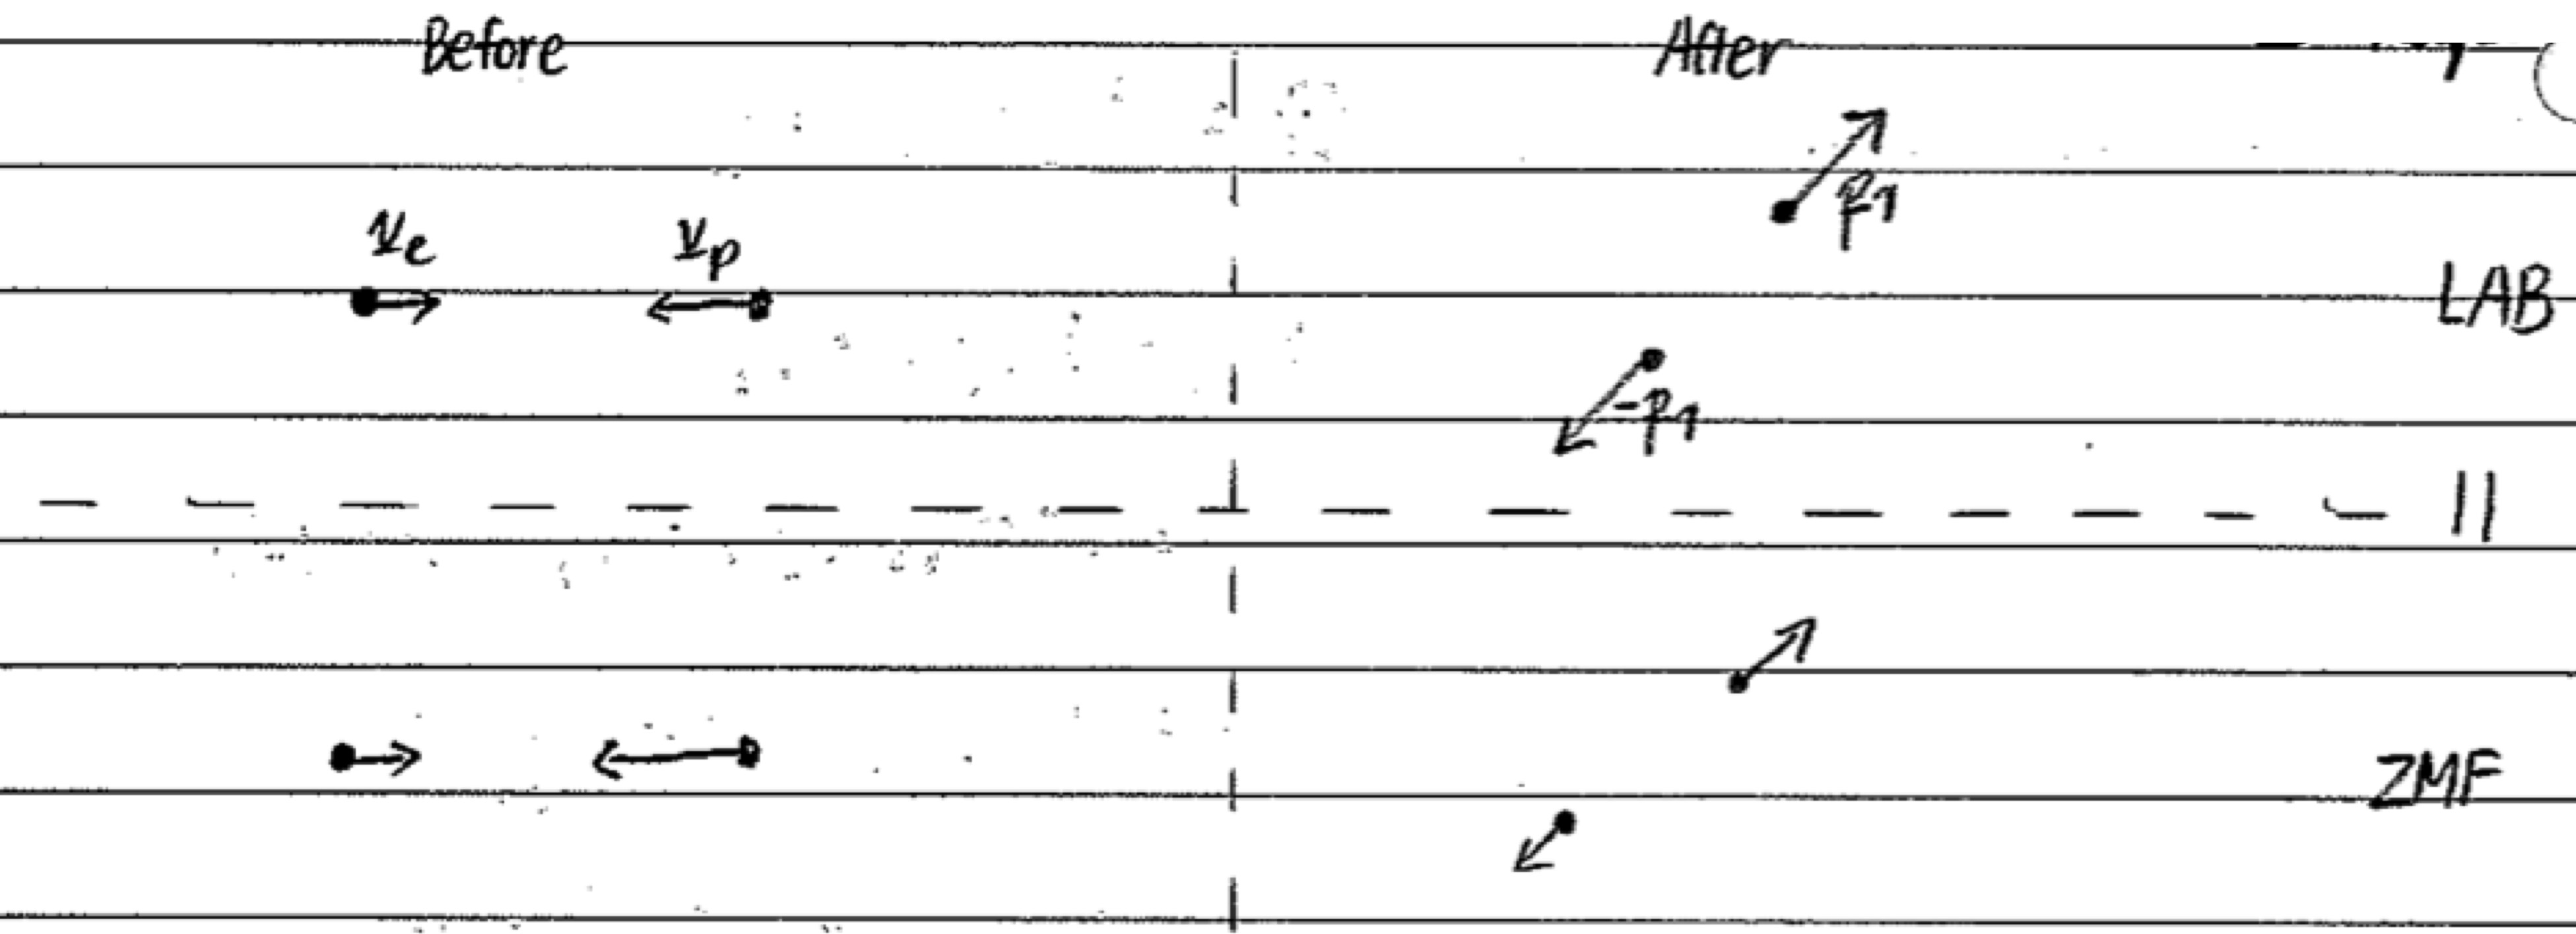 Before After
p1
ve vp
LAB
-p1
||
ZMF